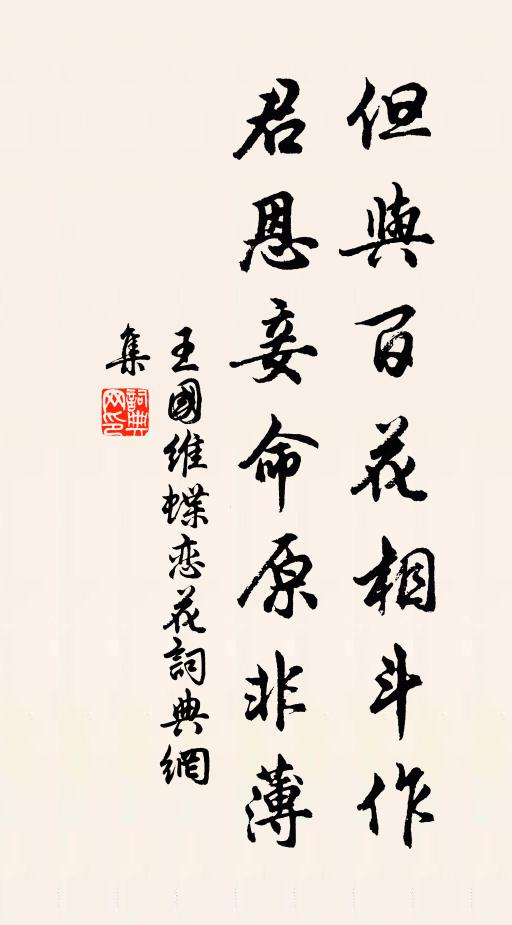 但與百花相斗作
君恩妾命原非薄
王國維蝶恋花詞典網
集
詞典
网印